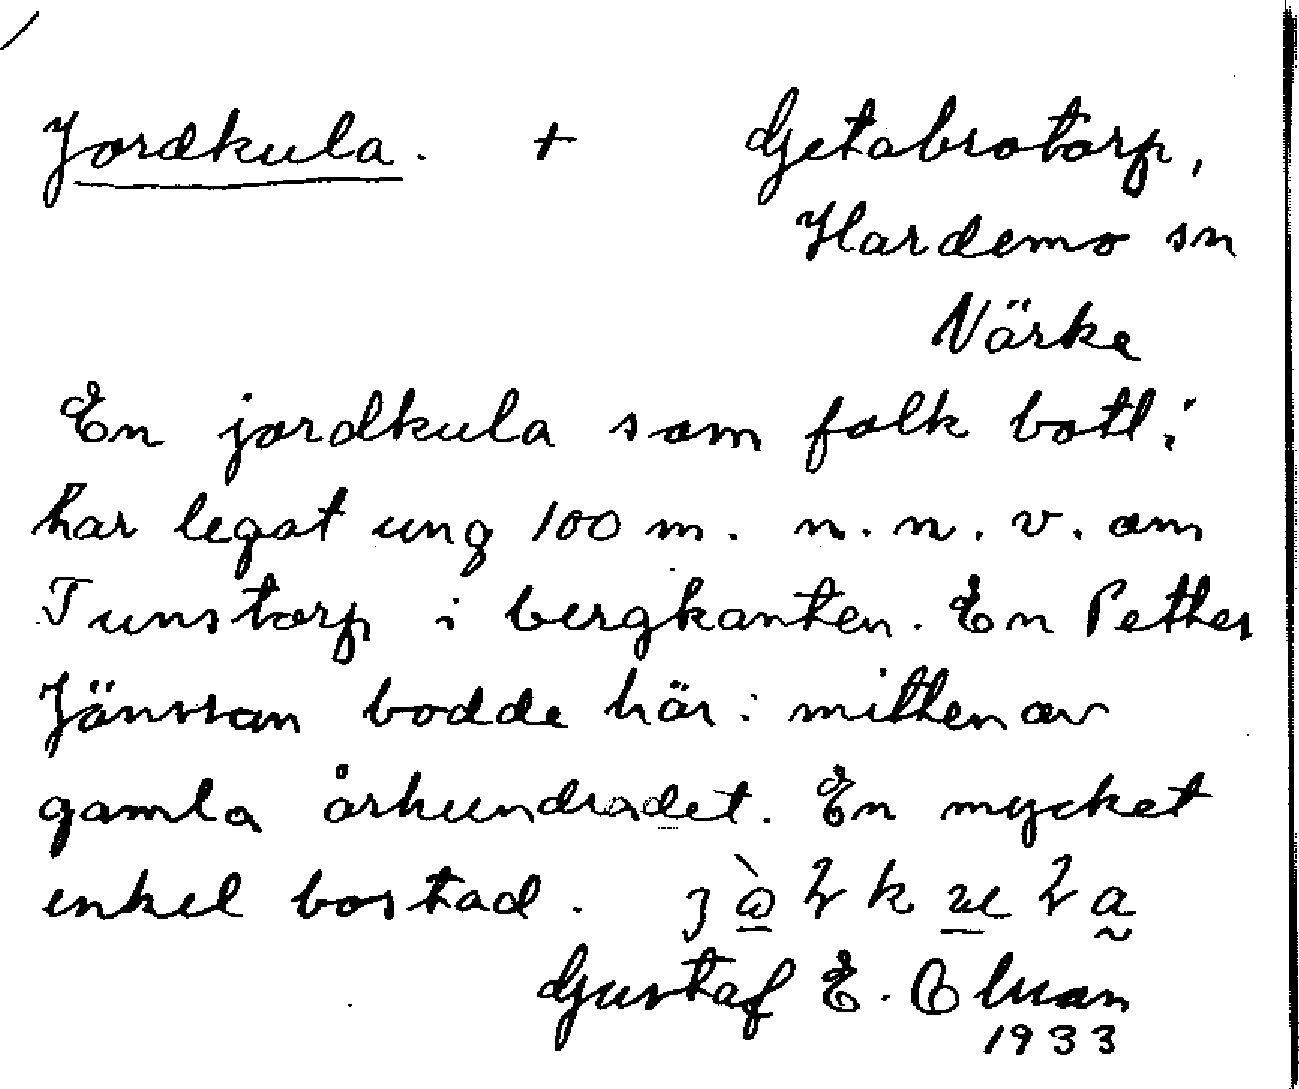 Jordkula. + Getabrotorp,
Hardemo sn
Närke
En jordkula som folk bott i
har legat ung 100 m. n. n. v. om
Tunstorp i bergkanten. En Petter
Jönsson bodde här i mitten av
gamla århundradet. En mycket
enkel bostad.
Gustaf E. Olsson
1933